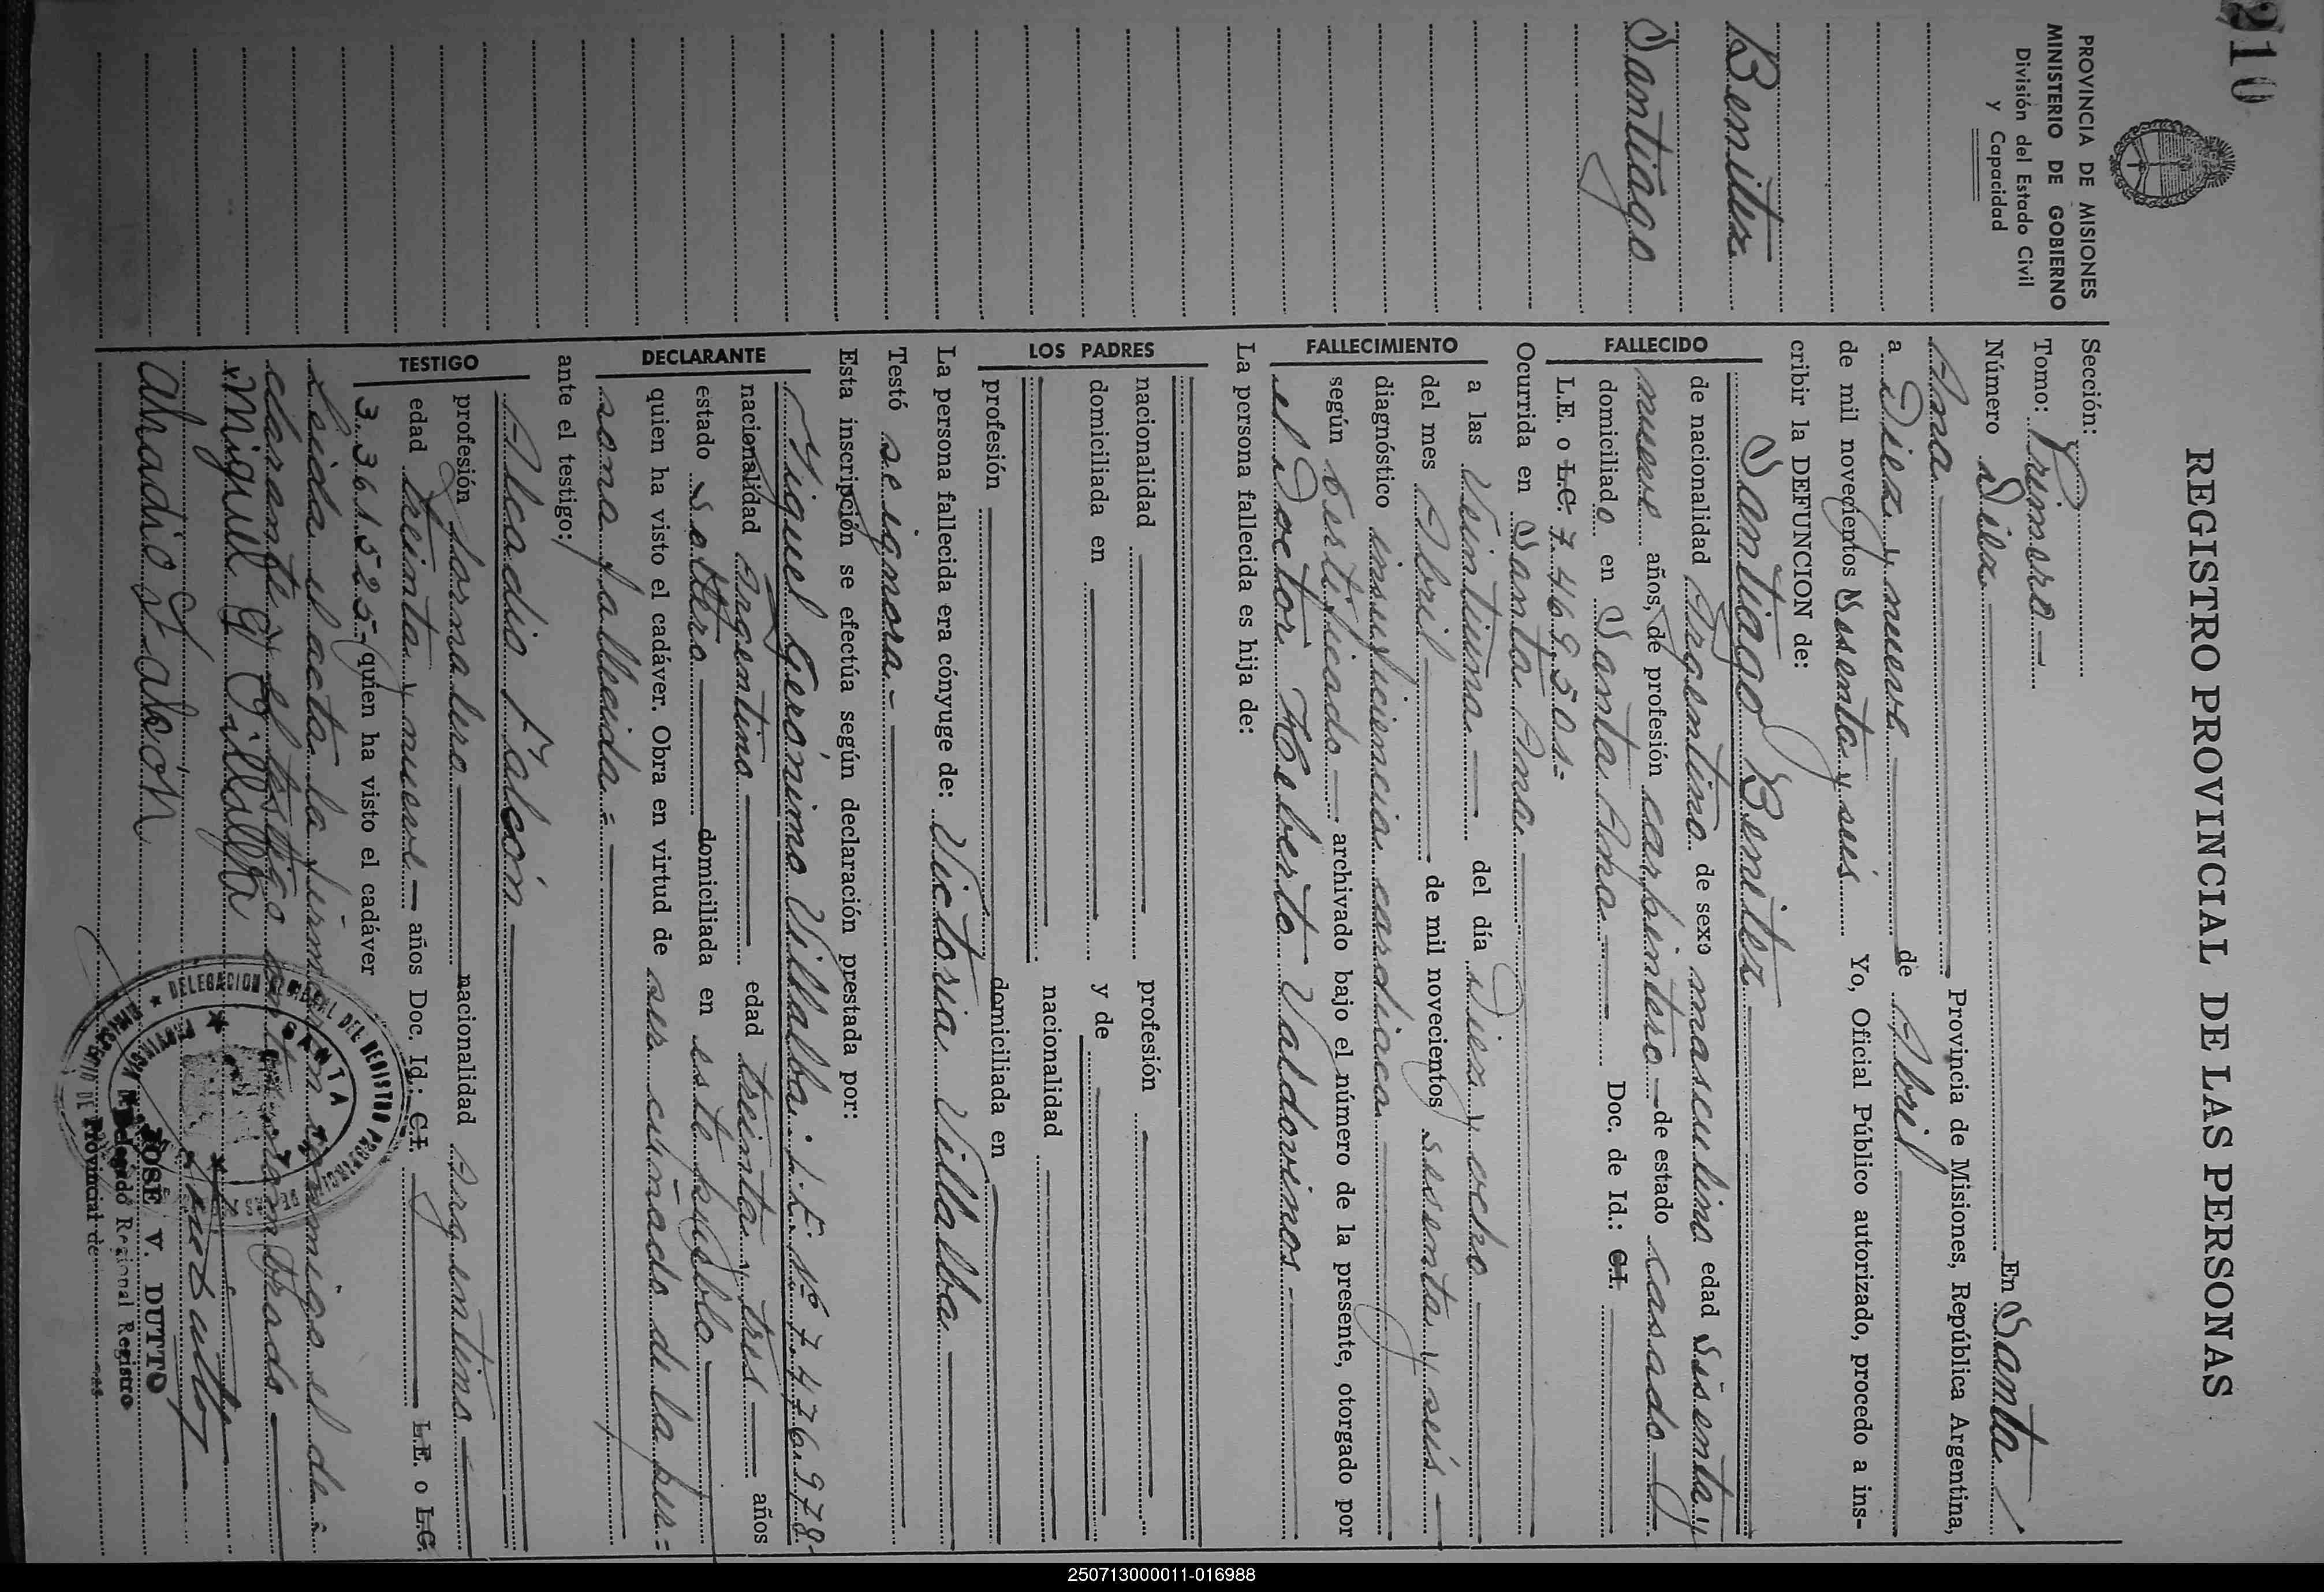 210
PROVINCIA DE MISIONES
MINISTERIO DE GOBIERNO
División del Estado Civil
y Capacidad
Benitez
Santiago
REGISTRO PROVINCIAL DE LAS PERSONAS
Sección:
Tomo: Primero
Número Diez En Santa
Ana Provincia de Misiones, República Argentina,
a Diez y nueve de Abril
de mil novecientos Sesenta y seis Yo, Oficial Público autorizado, procedo a ins-
cribir la DEFUNCION de:
FALLECIDO
Santiago Benitez
de nacionalidad Argentino de sexo masculino edad Sesenta y
nueve años, de profesión carpintero de estado casado
domiciliado en Santa Ana Doc. de Id.: C.I.
L.E. o L.C. 7.469.501=
Ocurrida en Santa Ana
FALLECIMIENTO
a las Veintiuna del día Diez y ocho
del mes Abril de mil novecientos sesenta y seis
diagnóstico insuficiencia cardiaca
según certificado archivado bajo el número de la presente, otorgado por
el Doctor Heberto Valdovinos
La persona fallecida es hija de:
LOS PADRES
nacionalidad profesión
domiciliada en y de
nacionalidad
profesión domiciliada en
La persona fallecida era cónyuge de: Victoria Villalba
Testó se ignora.-
Esta inscripción se efectúa según declaración prestada por:
DECLARANTE
Miguel Gerónimo Villalba: L.E. Nº 7.476.978-
nacionalidad Argentino edad treinta y tres años
estado Soltero domiciliada en este pueblo
quien ha visto el cadáver. Obra en virtud de ser cuñado de la per=
sona fallecida.=
ante el testigo:
TESTIGO
Alcadio Falcón
profesión jornalero nacionalidad Argentino
edad treinta y nueve años Doc. Id.: C.I. L.E. o L.C.
3.361.525- quien ha visto el cadáver
Leida el acta la firman conmigo el de=
clarante y el testigo
Miguel G Villalba
Alcadio Falcón
DELEGACION DEL REGISTRO
SANTA ANA
JOSE V. DUTTO
Delegado Regional Registro
Provincial de
250713000011-016988